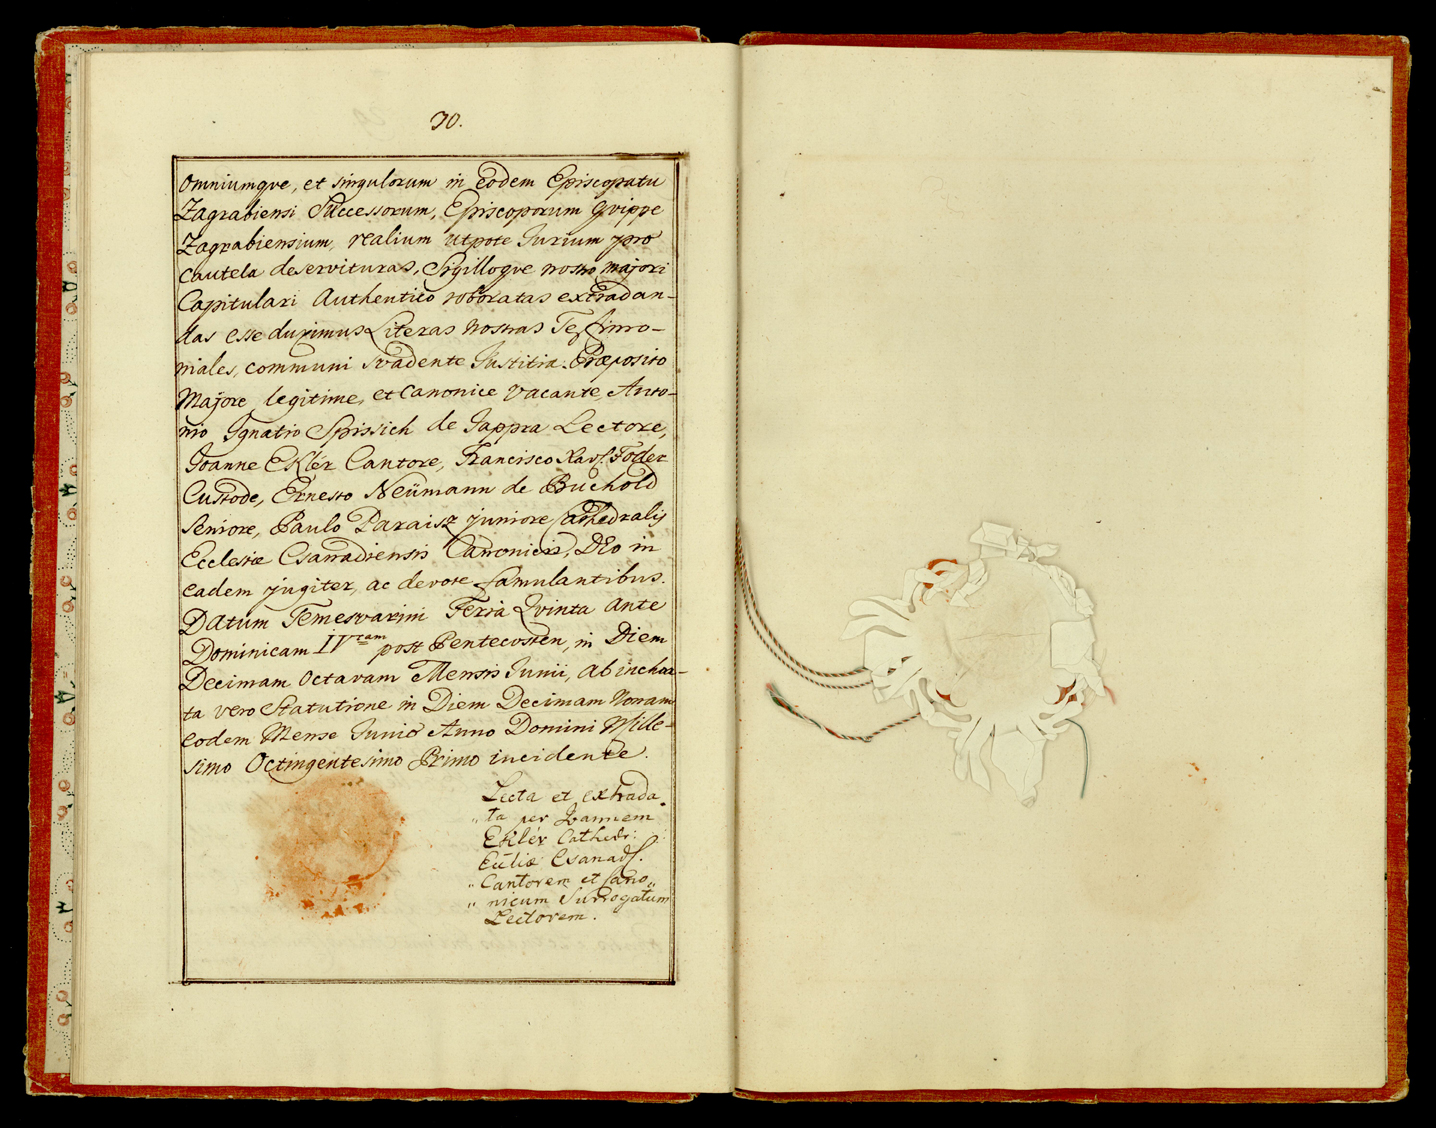 30.
Omniumqve, et singulorum in eodem Episcopatu
Zagrabiensi Successorum, Episcoporum qvippe
Zagrabiensium, realium utpote Jurium pro
cautela deservituras, Sigilloqve nostro majori
Capitulari Authentico roboratas extradan-
das esse duximus Literas nostras Testimo-
niales, communi svadente Justitia. Præposito
Majore legitime, et Canonice vacante, Anto-
nio Ignatio Spissich de Jappra Lectore,
Joanne Eklér Cantore, Francisco Xav. Fodér
Custode, Ernesto Neümann de Buchold
Seniore, Paulo Paraisz juniore Cathedralis
Ecclesiæ Csanadiensis Canonicis, DEo in
eadem jugiter, ac devote famulantibus.
Datum Temesvarini Feria Qvinta ante
Dominicam IVtam post Pentecosten, in Diem
Decimam Octavam Mensis Junii, ab inchoa-
ta vero Statutione in Diem Decimam Nonam
eodem Mense Junio Anno Domini Mille-
simo Octingentesimo Primo incidente.
Lecta et extrada
„ta per Joannem
Eklér Cathedr:
Eccliæ Csanad.
„Cantorem et Cano„
„nicum Surrogatum
Lectorem.